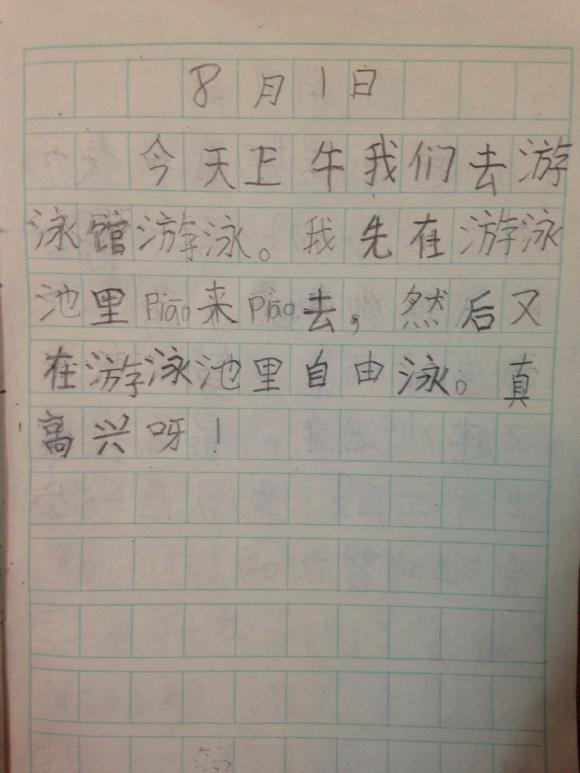 8月1日
今天上午我们去游
泳馆游泳。我先在游泳
池里piāo来piāo去，然后又
在游泳池里自由泳。真
高兴呀！